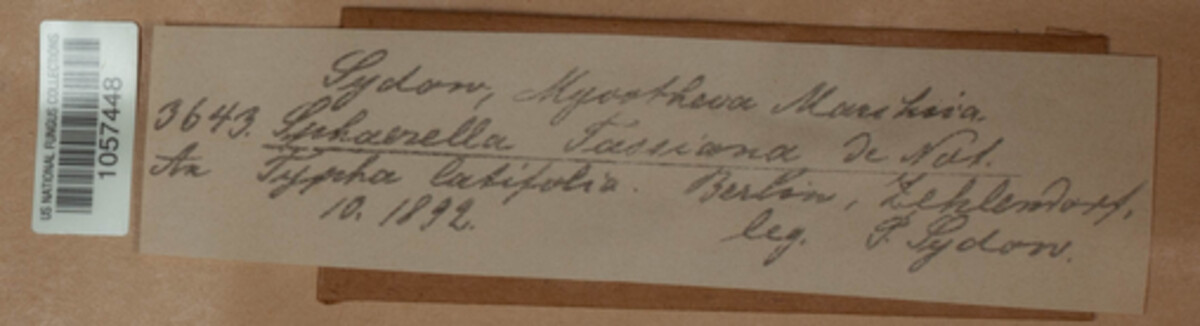 US NATIONAL FUNGUS COLLECTIONS
1057448
Sydow, Mycotheca Marchica.
3643. Sphaerella Tassiana de Not.
An Typha latifolia. Berlin, Zehlendorf,
10. 1892. leg. P. Sydow.